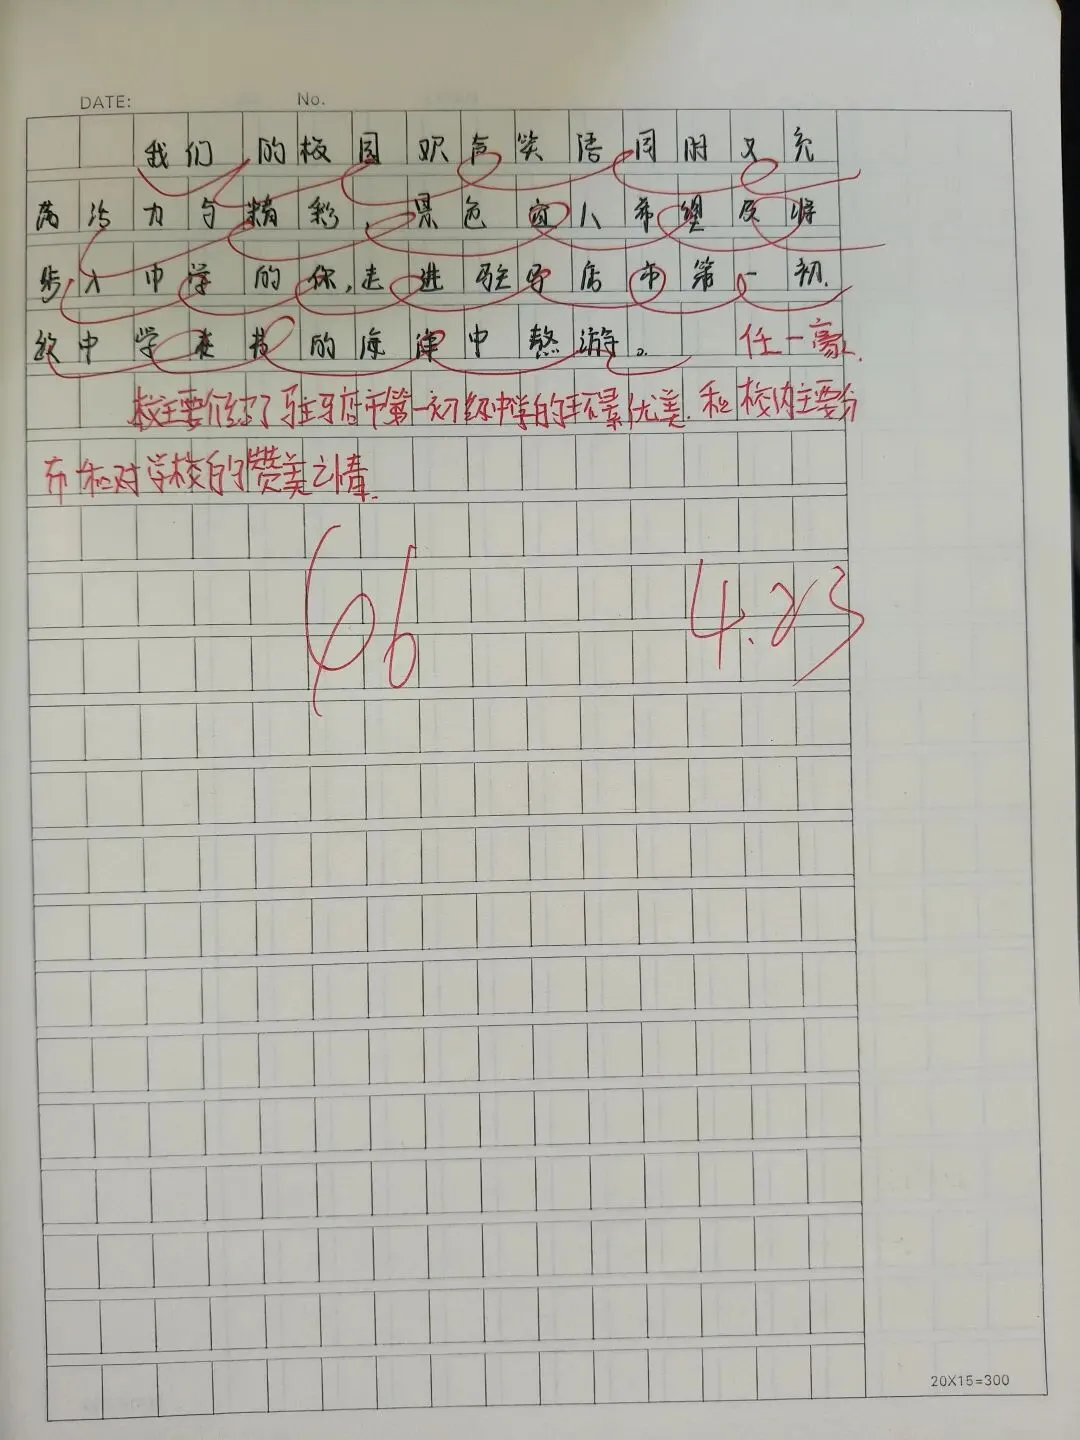 DATE: No.
我们的校园欢声笑语同时又充
满活力与精彩、景色宜人希望及将
步入中学的你,走进驻马店市第一初
级中学在书的海洋中熬游。 任一豪
校主要介绍了驻马店市第一初级中学的环景优美.和校内主要分
布和对学校的赞美之情.
66 4.23
20X15=300